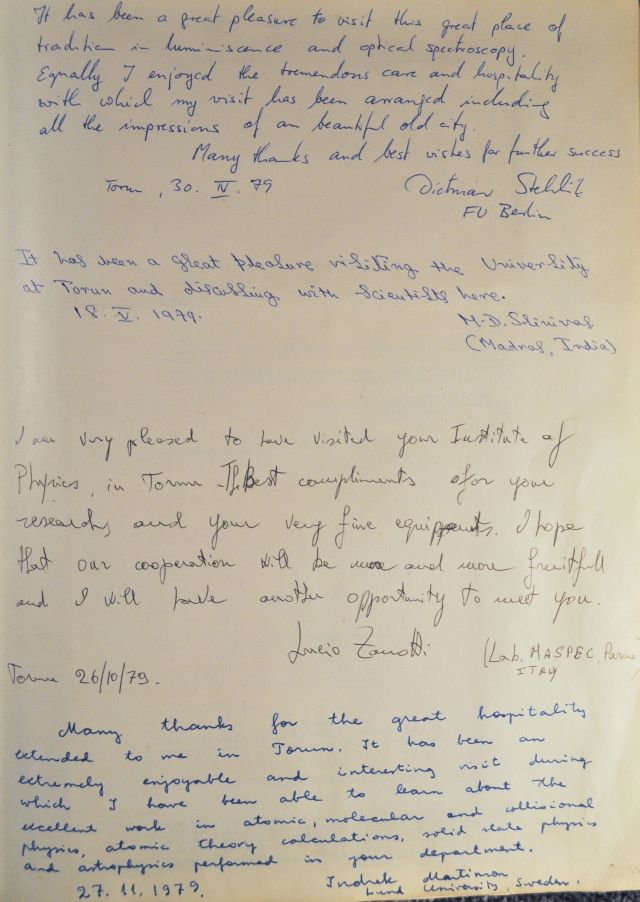 It has been a great pleasure to visit this great place of
tradition in luminiscence and optical spectroscopy.
Equally I enjoyed the tremendous care and hospitality
with which my visit has been arranged including
all the impressions of an beautiful old city.
Many thanks and best wishes for further success
Torun, 30. IV. 79 Dietmar Stehlik
FU Berlin
It has been a great pleasure visiting the University
at Torun and discussing with scientists here.
18. V. 1979. M.D. Srinivas
(Madras, India)
I am very pleased to have visited your Institute of
Physics, in Torun. The Best compliments for your
research, and your very fine equipments. I hope
that our cooperation will be more and more fruitfull
and I will have another opportunity to meet you.
Lucio Zanotti (Lab. MASPEC, Parma
ITALY
Torun 26/10/79.
Many thanks for the great hospitality
extended to me in Torun. It has been an
extremely enjoyable and interesting visit during
which I have been able to learn about the
excellent work in atomic, molecular and collisional
physics, atomic theory calculations, solid state physics
and astrophysics performed in your department.
27. 11. 1979. Indrek Martinson
Lund University, Sweden.